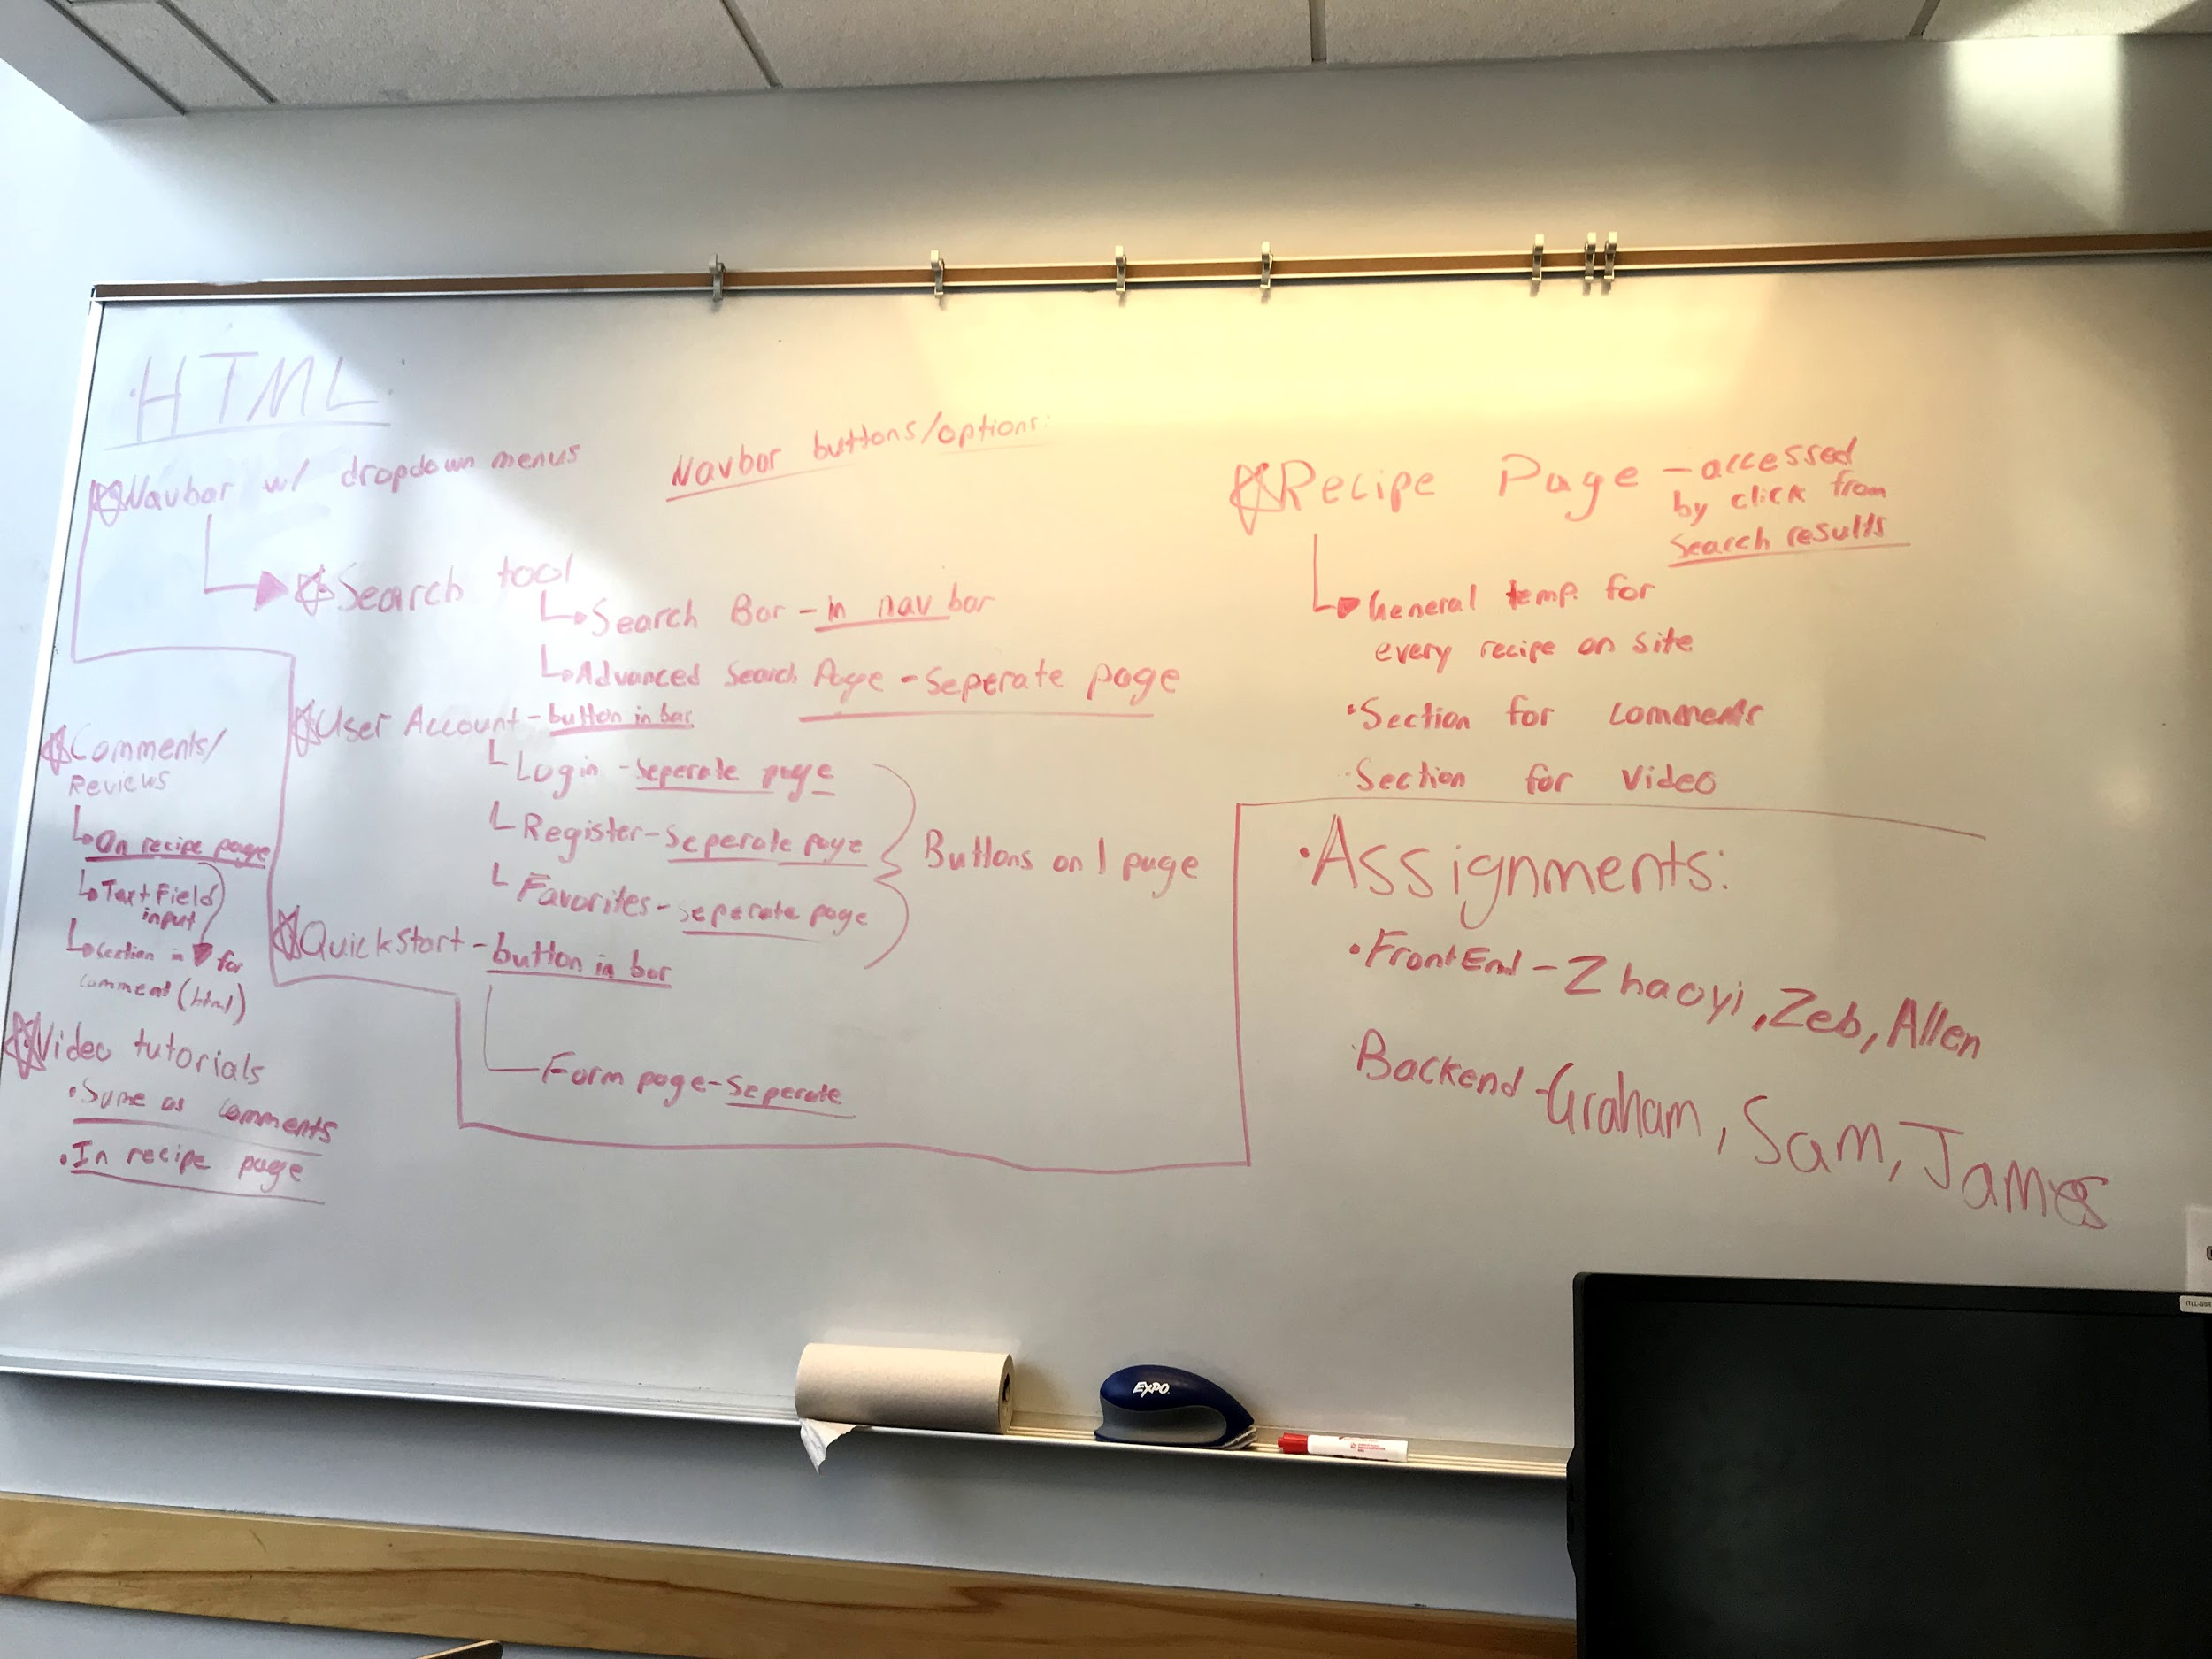 HTML
Navbar w/ dropdown menus
Navbar buttons/options:
Search tool
Search Bar - in nav bar
Advanced Search Page - Seperate page
User Account - button in bar
Login - Seperate page
Register - Seperate page
Favorites - Seperate page
Buttons on 1 page
Quickstart - button in bar
Form page - Seperate
Comments/
Reviews
On recipe page
Text Field
input
section in for
comment (html)
Video tutorials
• Same as comments
• In recipe page
Recipe Page - accessed
by click from
Search results
General temp. for
every recipe on site
• Section for comments
• Section for Video
• Assignments:
• Front End - Zhaoyi, Zeb, Allen
Backend - Graham, Sam, James
EXPO